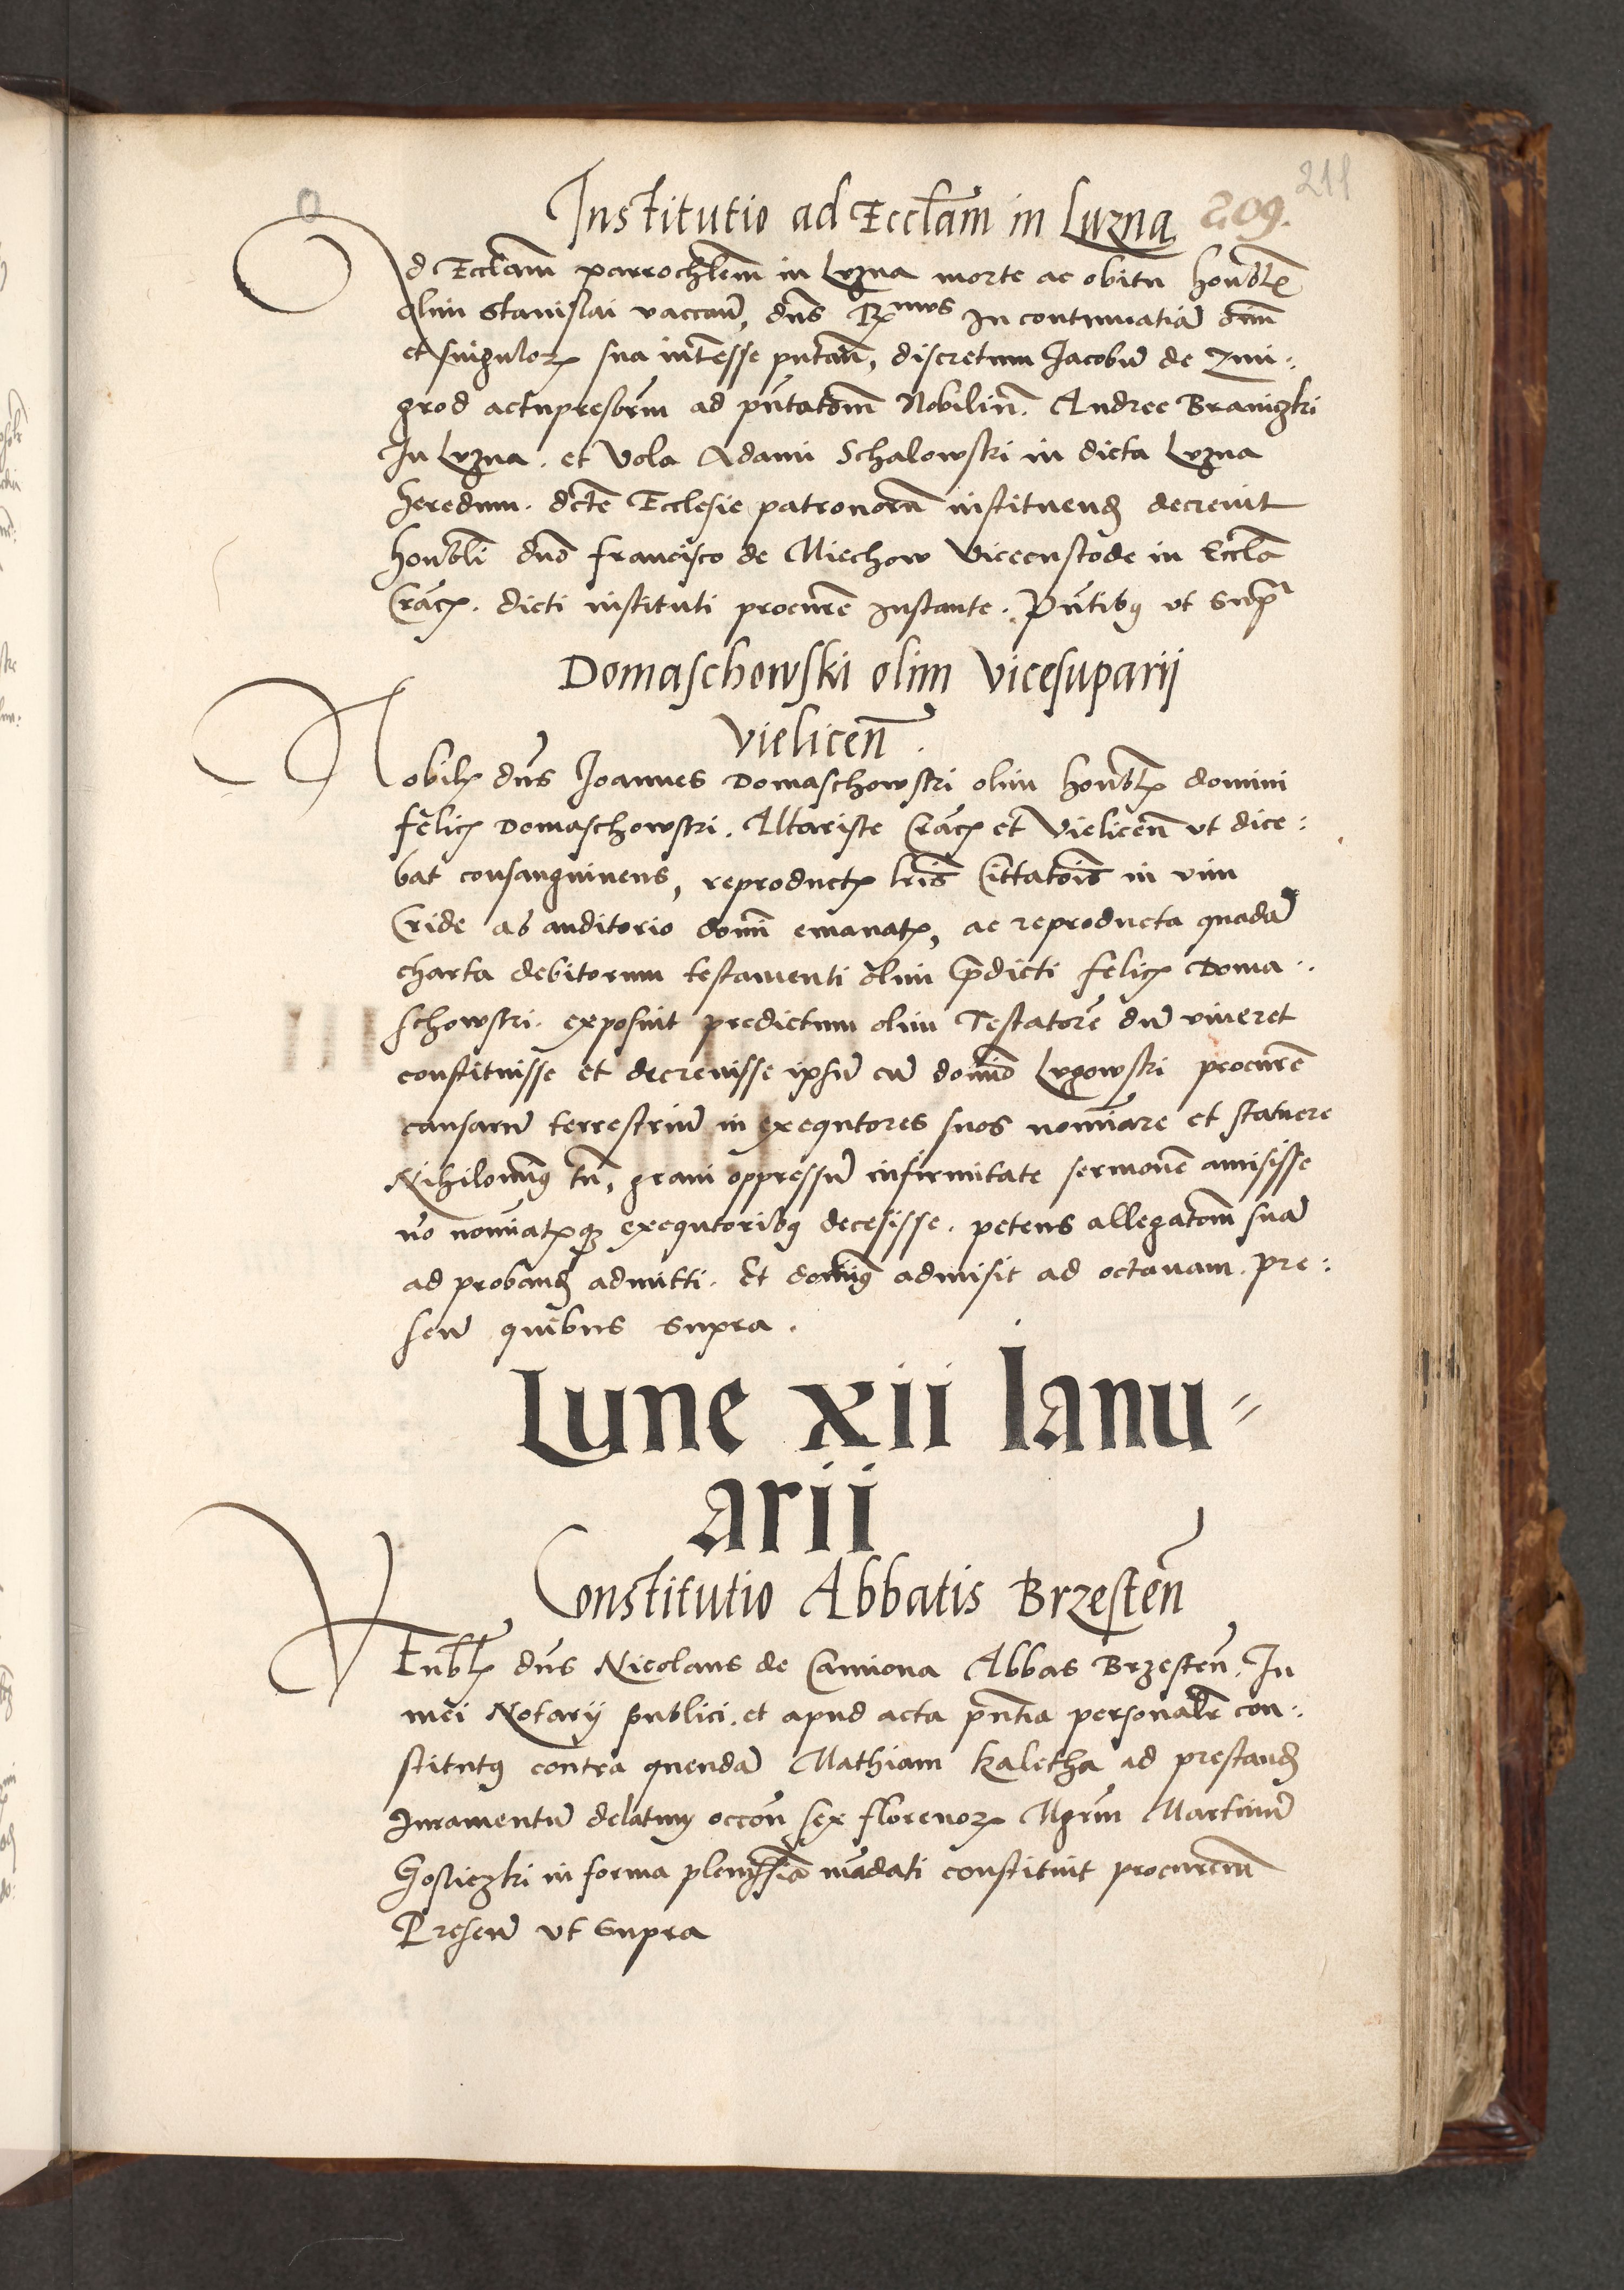 211
Institutio ad Eccl̃am in Luzna 209.
Ad Eccl̃am parrochl̃em in Luzna morte ac obitu honbl̃
olim Stanislai vaccañ, dñs Rmus In contumatiã oim̃
et singulor sua intẽsse putañ, discretum Jacobũ de Zmi-
grod actu presbrm̃ ad pñtatom̃ Nobiliũ. Andree Braniczki
In Luzna. et Vola Adami Schalowski in dicta Luzna
heredum. dcte Ecclesie patronorũ instituend decrevit
honbli dno francisco de Miechow Vicecustode in Eccla
Crac. dicti instituti procure Instante. Pñtibus ut Supra
Domaschowski olim Vicesuparii
Vielicen̄.
Nobil dñs Joannes Domaschowski olim honbl domini
felic Domaschowski. Altariste Crac et Vielicen̄ ut dice:
bat consanguineus, reproduct lris Cittatois in vim
Cride ab auditorio domi emanat, ac reproducta quadã
charta debitorum testamenti olim p̃dicti felic Doma:
schowski. exposuit predictum olim Testatorẽ dũ viveret
constituisse et decrevisse ipsũ cũ domino Lugowski procurẽ
causarũ terrestriũ in exequtores suos nominare et statuere
Nihilominus tñ, gravi oppressũ infirmitate sermonẽ amisisse
no nominatisque exequtoribus decesisse. petens allegatom̃ suã
ad proband admitti. Et dominus admisit ad octavam. pre:
sen̄ quibus supra.
Lune xii Ianu=
arii
Constitutio Abbatis Brzesten̄
VEnbl dñs Nicolaus de Camiona Abbas Brzesten̄. In
mei Notarij publici. et apud acta pñtia personalr con:
stitutus contra quendã Mathiam Kaletha ad prestand
Iuramentũ delatum occon̄ sex florenor Mgrm̃ Martinũ
Gosliczki in forma plenissia mãdati constituit procurem̃
Presen̄ ut Supra